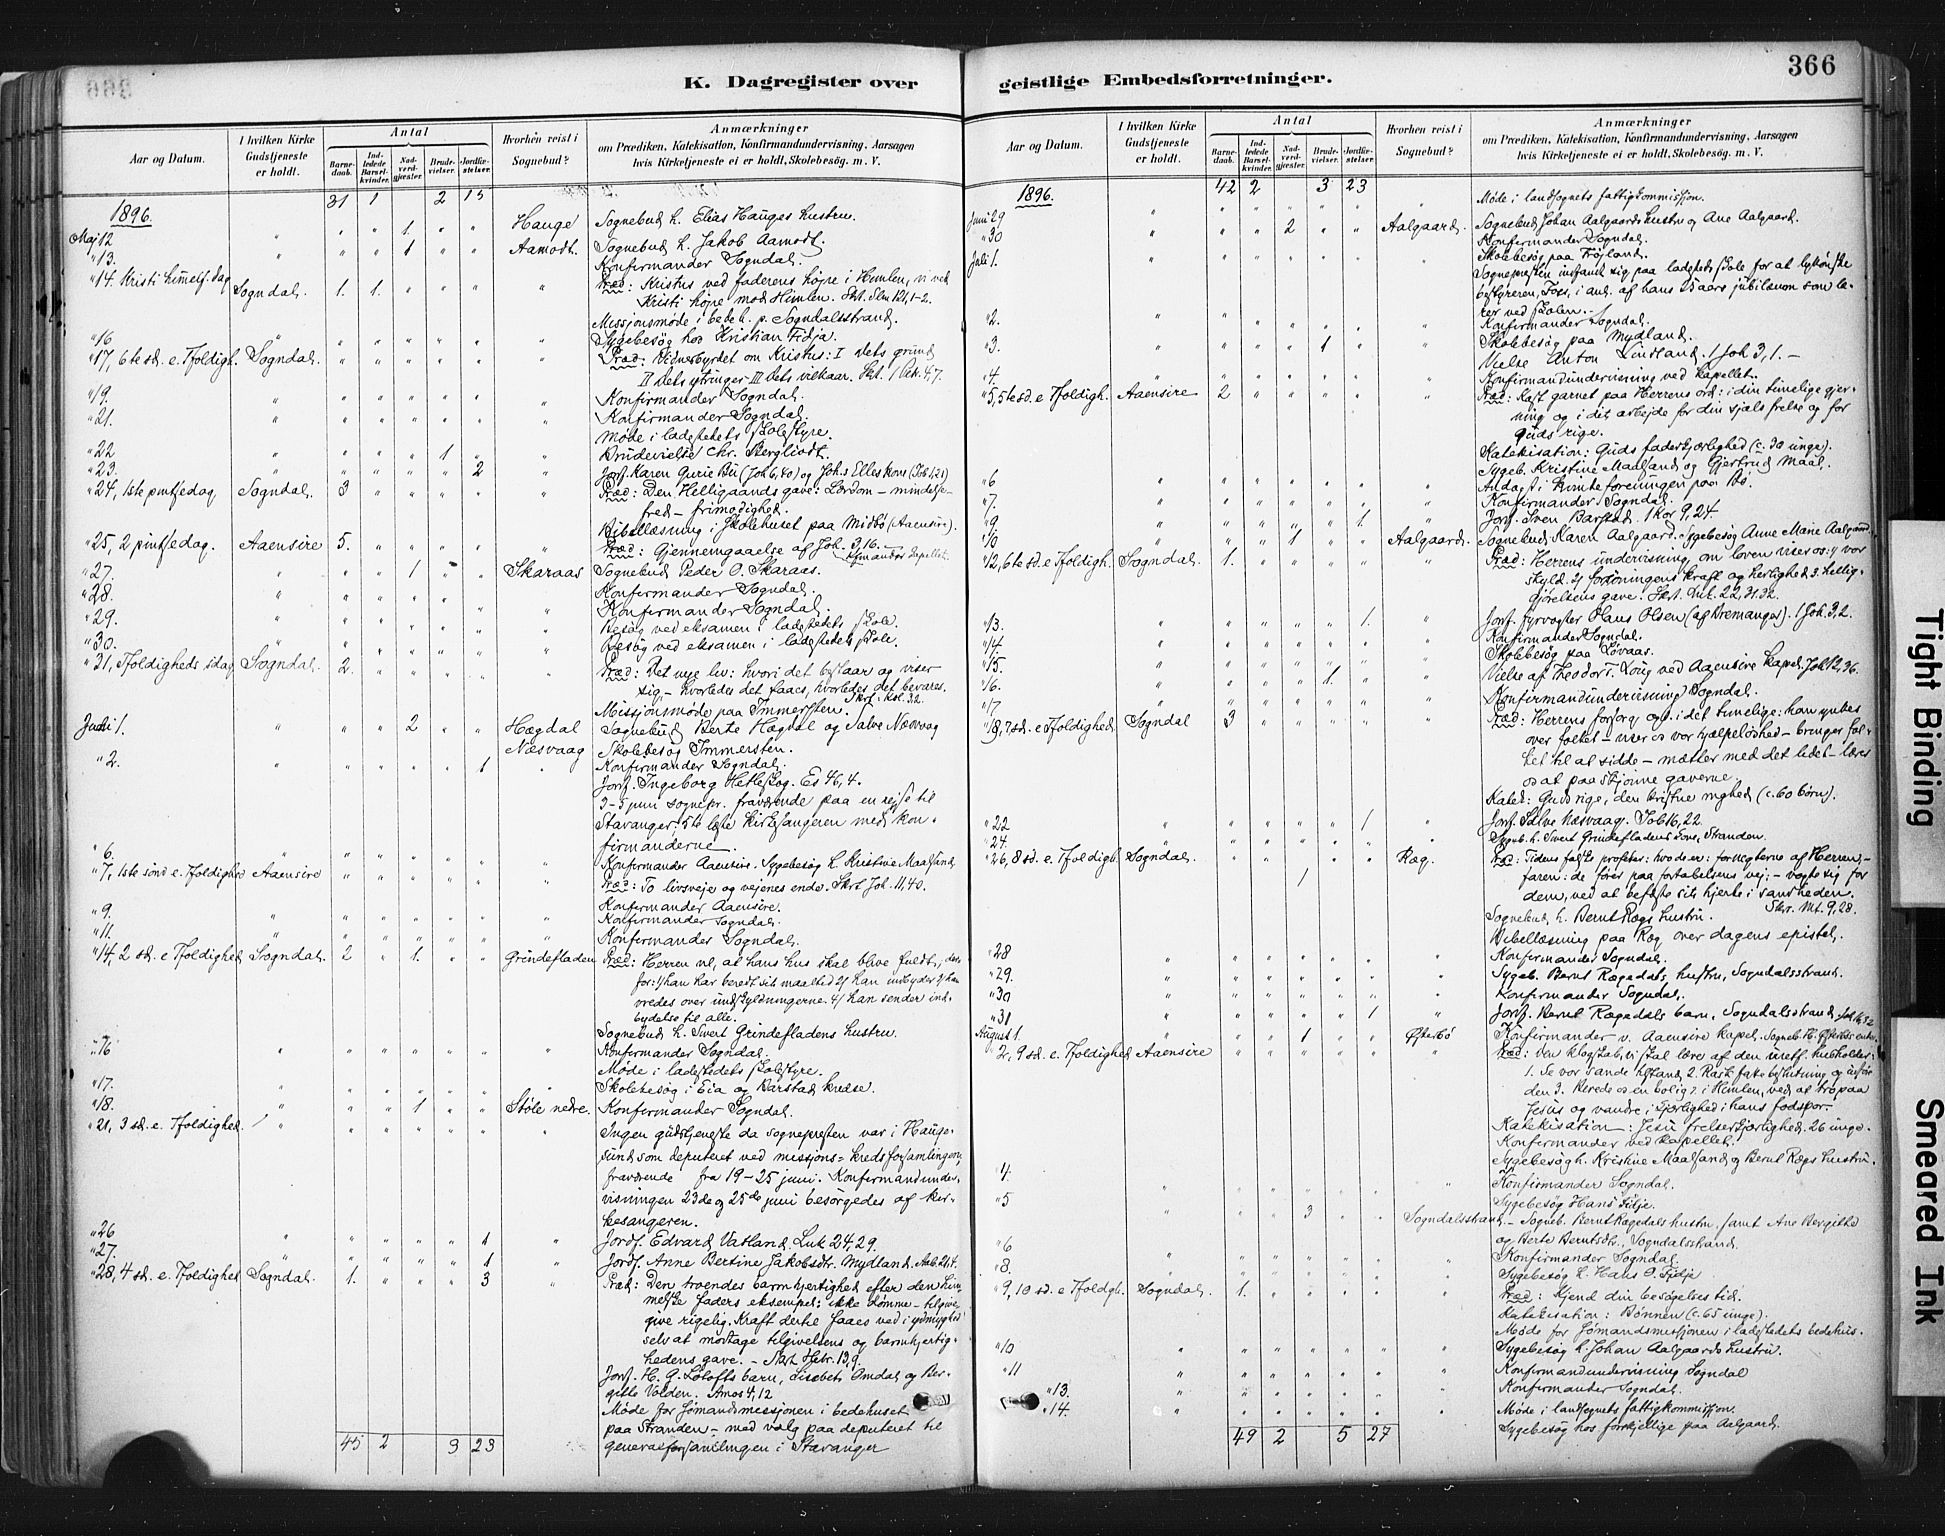 366
K. Dagregister over
Aar og Datum.
I hvilken Kirke
Gudstjeneste
er holdt.
Antal
Barne-
daab.
Ind-
ledede
Barsel-
kvinder.
Nad-
verd-
gjester.
Brude-
vielser.
Jordfæ-
stelser.
Hvorhen reist i
Sognebud?
Anmærkninger
om Prædiken, Katekisation, Konfirmandundervisning, Aarsagen
hvis Kirketjeneste ei er holdt, Skolebesög. m. V.
31 1 2 15
1896.
Maj 12 " " " 1. " " Hauge Sognebud h. Elias Hauges hustru.
"13. " " " 1 " " Aamodt. Sognebud h. Jakob Aamodt.
Konfirmander Sogndal.
"14. Kristi himelf. dag Sogndal. 1. 1. " " " " Præd: Kristus ved faderens højre i Himlen, vi ved
Kristi højre mod Himlen.
Missjonsmøde i bedeh. p. Sogndalsstrand.
"16 Sygebesøg hos Kristian Fidja.
"17, 6te sd. e. Sogndal. Præd: Vidnesbyrdet om Kristus: I dets grund
II Dets ytringer III Dets vilkaar.
"19. Konfirmander Sogndal.
"21. Konfirmander Sogndal.
Møde i ladestedets skolestyre.
"22 " " " " 1 " " Brudevielse Chr. Berglivdt.
"23. " " " " " 2 " Jorf. Karen Gurie Bu (Joh 6,40) og
"24, 1ste pintsedag, Sogndal. 3 Præd: Den Helligaands gave: Lærdom – mindelse –
fred – frimodighed.
Bibellæsning i Skolehuset paa Midbø (Aaensire).
"25, 2 pintsedag. Aaensire 5. Præd: Gjennemgaaelse af Joh. 3,16.
"27. " " " 1 Skaraas Sognebud Peder O. Skaraas.
"28. Konfirmander Sogndal.
"29. Konfirmander Sogndal.
Besøg ved eksamen i ladestedets skole.
"30. Besøg ved eksamen i ladestedets skole.
"31, Tfoldigheds sdag Sogndal. 2. Præd: Det nye liv: hvori det bestaar og viser
sig – hvorledes det faaes, hvorledes det bevares.
Missjonsmøde paa Immersten.
Juni 1. " " " 2 " " Hægdal Sognebud Berte Hægdal og Salve Næsvaag
Næsvaag Skolebesøg Immersten.
"2. " " " " " 1 Konfirmander Sogndal.
Jorf. Ingeborg Hetleskog. Es 46,4.
3–5 juni sognepr. fraværende paa en rejse til
Stavanger; 5te læste kirkesangeren med kon-
firmanderne.
"6. Konfirmander Aaensire. Sygebesøg h. Kristine Maalsand
"7, 1ste sønd e. Tfoldighed Aaensire Præd: To livsveje og vejenes ende. Skrt Joh. 11,40.
"9. Konfirmander Aaensire.
Konfirmander Sogndal.
"11. Konfirmander Sogndal.
"14, 2 sd. e Tfoldighed Sogndal. 2 " 1. " " Grindefladen Præd: Herren vil, at hans hus skal blive fuldt, der-
for: 1/ han har beredt sit maaltid 2/ han indbyder 3/ han
vredes over undskyldningerne. 4/ han sender ind-
bydelse til alle.
Sognebud h. Sivert Grindefladens hustru.
"16 Konfirmander Sogndal.
Møde i ladestedets skolestyre.
"17. Skolebesøg i Eia og Barstad kredse.
"18. " " " 1 " " Støle nedre. Konfirmander Sogndal.
"21, 3 sd. e. Tfoldighed. Ingen gudstjeneste da sognepresten var i Hauge-
sund som deputeret ved missjons-kredsforsamlingen,
fraværende fra 19–25 juni. Konfirmandunder-
visningen 23de og 25de juni besørgedes af kir-
kesangeren.
"26 " " " " " 1 " Jordf. Edvard Vatland Luk 24,29.
"27. " " " " " 1 Jordf. Anne Bertine Jakobsdtr. Mydland.
"28, 4 sd. e. Tfoldighed Sogndal. 1. " " " 3 " Præd: Den troendes barmhjertighed efter den him-
melske faders eksempel: ikke dømme – tilgive –
give rigelig. Kraft dertil faaes ved i ydmyghed
selv at modtage tilgivelsens og barmhjertig-
hedens gave. – Hebr. 13,9.
Jorf. H. G. Løtofts barn, Lisabet Omdal og Ber-
gitte Volden. Amos 4,12
Møde for Sømandsmissjonen i bedehuset
paa Stranden – med valg paa deputeret til
45 2 3 23 generalforsamlingen i Stavanger
geistlige Embedsforretninger.
366
Aar og Datum.
I hvilken Kirke
Gudstjeneste
er holdt.
Antal
Barne-
daab.
Ind-
ledede
Barsel-
kvinder.
Nad-
verd-
gjester.
Brude-
vielser.
Jordfæ-
stelser.
Hvorhen reist i
Sognebud?
Anmærkninger
om Prædiken, Katekisation, Konfirmandundervisning, Aarsagen
hvis Kirketjeneste ei er holdt, Skolebesög. m. V.
42 2 3 23
1896.
Juni 29 Møde i landsognets fattigkommissjon.
"30 " " " 2 " " Aalgaard. Sognebud Johan Aalgaards hustru og Ane Aalgaard.
Konfirmander Sogndal.
Juli 1. Skolebesøg paa Frøyland.
Sognepresten indfandt sig paa ladestedsskole for at lykønske
bestyreren, Foss, i anl. af hans 25 aars jubilæum som læ-
rer ved skolen.
"2. Konfirmander Sogndal.
"3. " " " " 1 Skolebesøg paa Mydland.
Vielse Anton Lindland. 1 Joh 3,1. –
"4. Konfirmandundervisning ved kapellet.
"5, 5te sd. e Tfoldigh. Aaensire 2 Præd: Kast garnet paa Herrens ord: i din timelige gjer-
ning og i dit arbejde for din sjæls frelse og for
Guds rige.
Katekisation: Guds faderkjærlighed (c. 30 unge).
Sygeb. Kristine Maalsand og Gjertrud Maal.
"6 Andagt i kvindeforeningen paa Bø.
"7. Konfirmander Sogndal.
"9. " " " " " 1. Jorf. Sven Barstad. 1 Kor 9,24
"10 " " " 1 Aalgaard. Sognebud Karen Aalgaard. Sygebesøg Anne Marie Aalgaard
"12, 6te sd. e Tfoldigh. Sogndal. 1. Præd: Herrens undervisning om loven viser os: 1/ vor
skyld. 2/ forsoningens kraft og herlighed 3. hellig-
gjørelsens gave.
"13. " " " " " 1. " Jorf. fyrvogter Hans Olsen (af Bremanger). 1 Joh. 3,2.
"14. Konfirmander Sogndal.
"15. Skolebesøg paa Løvaas.
"16. " " " " 1. Vielse af Theodor T. Loug ved Aaensire kapel.
"17 Konfirmandundervisning Sogndal.
"19, 7. sd. e Tfoldighed Sogndal 3 Præd: Herrens forsorg ogs. i det timelige: han ynkes
over folket – viser os vor hjælpeløshed – bringer fol-
ket til at sidde – mætter med det lidet – lærer
os at paaskjønne gaverne.
Katek: Guds rige, den kristne myhed (c. 60 børn).
"22 " " " " " 1 " Jorf. Salve Næsvaag. Job 16,22.
"24. Sygeb. h. Sivert Grindefladens Stranden.
"26, 8 sd. e Tfoldigh Sogndal. 1 Ræg. Præd: Tidens falske profeter: hvad er: fornegterne af Herren, –
faren: de fører paa fortabelsens vej; – vogte sig for
dem, ved at befæste sit hjerte i sandheden.
Skr. Mt. 9,28.
Sognebud h. Bernt Rægs hustru.
Bibellæsning paa Ræg over dagens epistel.
"28 Konfirmander Sogndal.
"29. Sygeb. Bernt Rægedals hustru, Sogndalsstrand.
"30 Konfirmander Sogndal.
"31 " " " " " 1 " Jorf. Bernt Rægedals barn, Sogndalsstrand.
August 1. " " " 1 " " Østerbø Konfirmander v. Aaensire kapel.
"2, 9 sd. e. Tfoldighed Aaensire Præd: Den klogskab, vi skal lære af den uretf. husholder:
1. Se vor sande tilstand 2. Rask fatte beslutning og udføre
den 3. Berede os en bolig i Himlen, ved at tro paa
Jesus og vandre i kjærlighed i hans fodspor.
Katekisation: Jesu frelserkjærlighed. 26 unge.
Konfirmander ved kapellet.
"4. Sygebesøg h. Kristine Maalsand og Bernt Rægs hustru.
Konfirmander Sogndal.
"5 Sygebesøg Hans Fidje.
" " " 3 " " Sogndalsstrand – Sogneb. Bernt Rægedals hustru samt Ane Bergitte
og Berte Berntsdtr., Sogndalsstrand.
"6 Konfirmander Sogndal.
"8. Sygebesøg h. Hans O. Fidje
"9, 10 sd. e Tfoldgh. Sogndal. 1. Præd: Kjend din besøgelsestid.
Katekisation: Bønnen (c. 65 unge).
Møde for Sømandsmissjonen i ladestedets bedehus.
"10 Sygebesøg h. Johan Aalgaards hustru.
"11 Konfirmandundervisning Sogndal
"13. Konfirmander Sogndal.
"14. Møde i landsognets fattigkommissjon.
Sygebesøg hos forskjellige paa Aalgaard.
49 2 5 27
Tight Binding
Smeared Ink